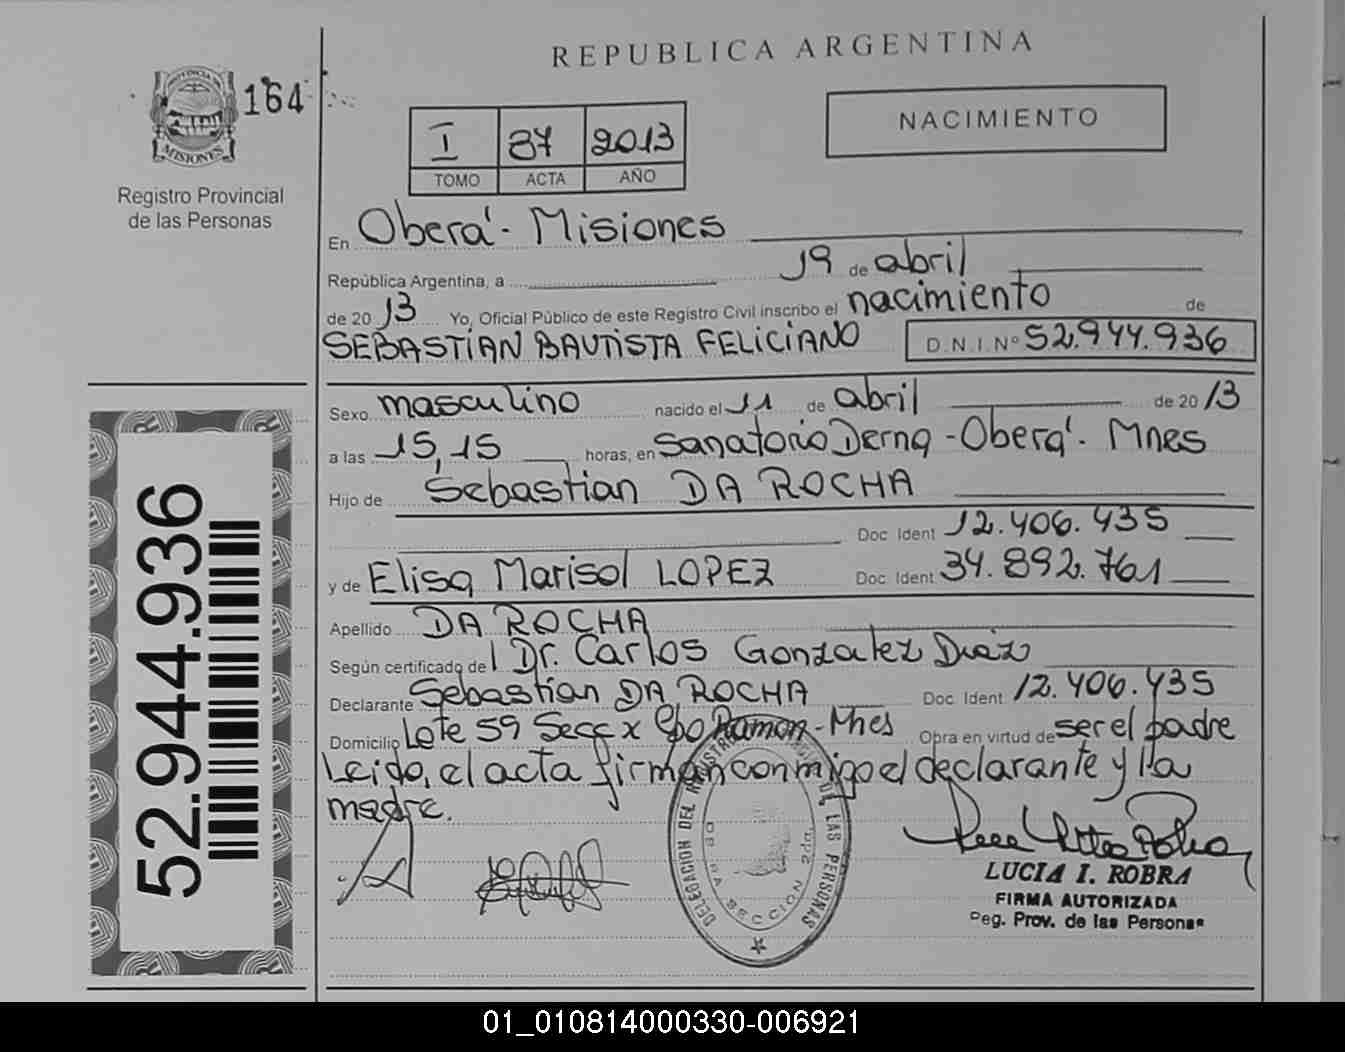 REPUBLICA ARGENTINA
164
PROVINCIA DE
MISIONES
Registro Provincial
de las Personas
I 87 2013
TOMO ACTA AÑO
NACIMIENTO
En Oberá - Misiones
República Argentina, a 19 de abril
de 2013 Yo, Oficial Público de este Registro Civil inscribo el nacimiento de
SEBASTIAN BAUTISTA FELICIANO D.N.I. Nº 52.944.936
Sexo masculino nacido el 11 de abril de 2013
a las 15,15 horas, en Sanatorio Derna - Oberá - Mnes
Hijo de Sebastian DA ROCHA
Doc Ident 12.406.435
y de Elisa Marisol LOPEZ Doc Ident 34.892.761
Apellido DA ROCHA
Según certificado de Dr. Carlos Gonzalez Diaz
Declarante Sebastian DA ROCHA Doc Ident 12.406.435
Domicilio Lote 59 Secc x Cpo Ramon - Mnes Obra en virtud de ser el padre
Leido, el acta firman conmigo el declarante y la
madre.
DELEGACION DEL REGISTRO DE LAS PERSONAS
SECCION 2da.
LUCIA I. ROBRA
FIRMA AUTORIZADA
Reg. Prov. de las Personas
52.944.936
01_010814000330-006921